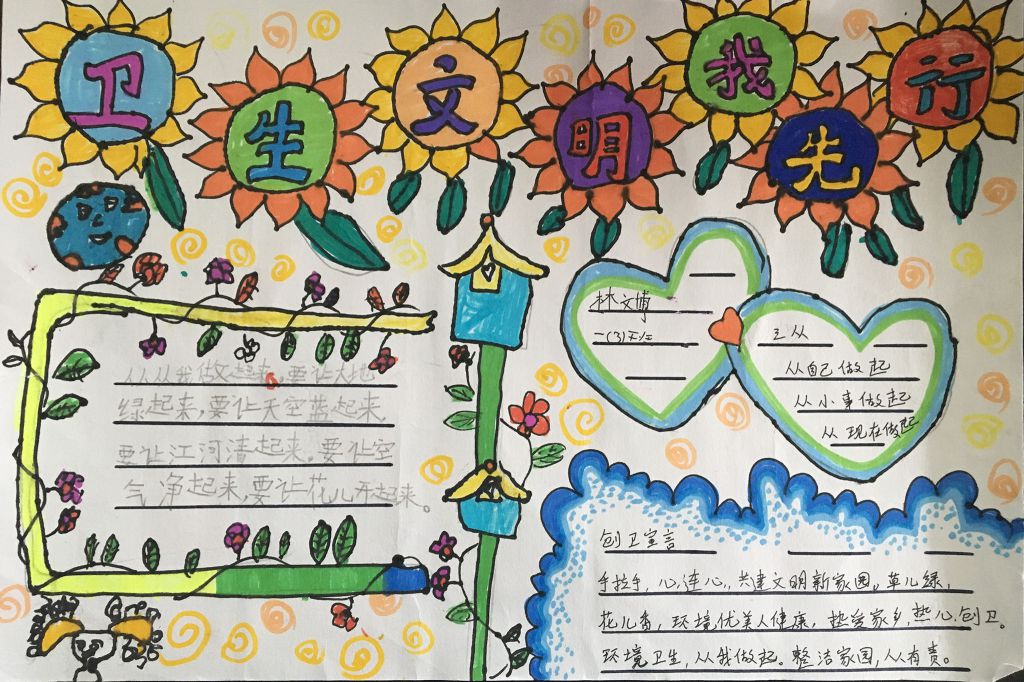 卫生文明我先行
从我做起,要让大地
绿起来,要让天空蓝起来
要让江河清起来,要让空
气净起来,要让花儿开起来。
林文博
一(3)
三从
从自己做起
从小事做起
从现在做起
创卫宣言
手拉手,心连心,共建文明新家园。草儿绿,
花儿香,环境优美人健康,热爱家乡,热心创卫。
环境卫生,从我做起。整洁家园,人人有责。